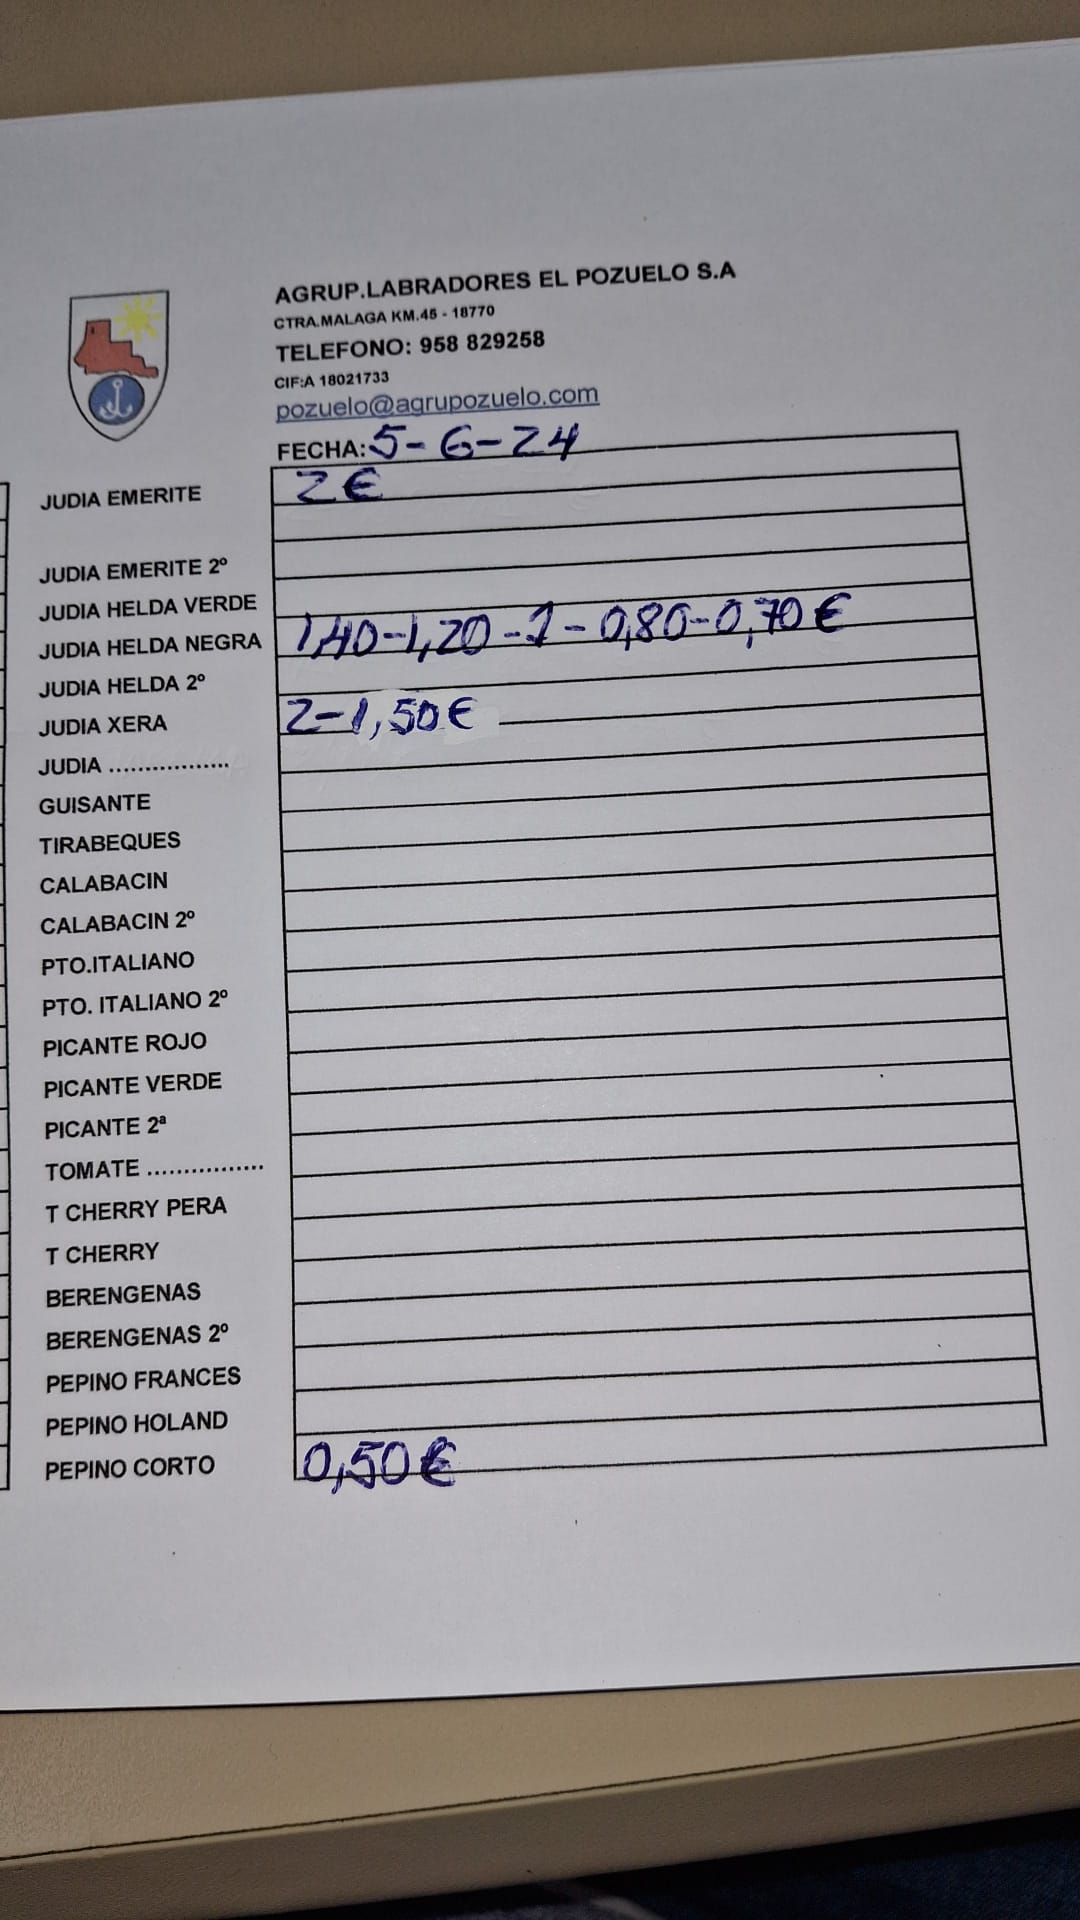 AGRUP.LABRADORES EL POZUELO S.A
CTRA.MALAGA KM.45 - 18770
TELEFONO: 958 829258
CIF:A 18021733
pozuelo@agrupozuelo.com
FECHA: 5-6-24
JUDIA EMERITE 2€
JUDIA EMERITE 2º
JUDIA HELDA VERDE
JUDIA HELDA NEGRA 1,40-1,20-1-0,80-0,70€
JUDIA HELDA 2º
JUDIA XERA 2-1,50€
JUDIA .................
GUISANTE
TIRABEQUES
CALABACIN
CALABACIN 2º
PTO.ITALIANO
PTO. ITALIANO 2º
PICANTE ROJO
PICANTE VERDE
PICANTE 2ª
TOMATE ................
T CHERRY PERA
T CHERRY
BERENGENAS
BERENGENAS 2º
PEPINO FRANCES
PEPINO HOLAND
PEPINO CORTO 0,50€